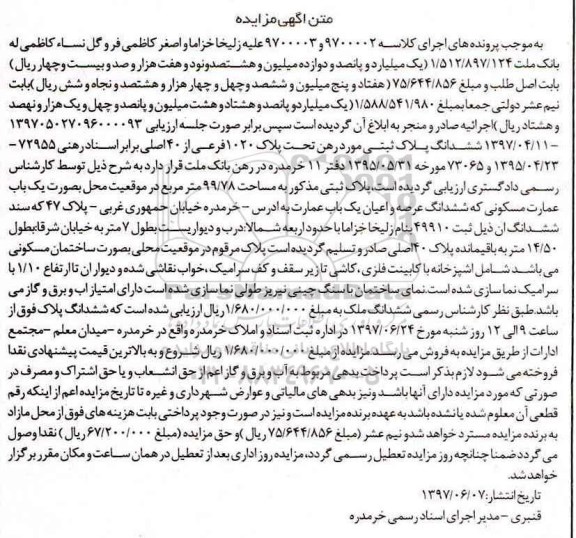 متن اگهی مزایده
به موجب پرونده های اجرای کلاسه ۹۷۰۰۰۰۲ و ۹۷۰۰۰۰۳ علیه زلیخا خزاما و اصغر کاظمی فر و گل نساء کاظمی له
بانک ملت ۱/۵۱۲/۸۹۷/۱۲۴ (یک میلیارد و پانصد و دوازده میلیون و هشتصد و نود و هفت هزار و صد و بیست و چهار ریال)
بابت اصل طلب و مبلغ ۷۵/۶۴۴/۸۵۶ (هفتاد و پنج میلیون و ششصد و چهل و چهار هزار و هشتصد و پنجاه و شش ریال) بابت
نیم عشر دولتی جمعا بمبلغ ۱/۵۸۸/۵۴۱/۹۸۰ (یک میلیارد و پانصد و هشتاد و هشت میلیون و پانصد و چهل و یک هزار و نهصد
و هشتاد ریال) اجرائیه صادر و منجر به ابلاغ آن گردیده است سپس برابر صورت جلسه ارزیابی ۱۳۹۷۰۵۰۲۷۰۹۶۰۰۰۰۹۳
-۱۳۹۷/۰۴/۱۱ ششدانگ پلاک ثبتی مورد رهن تحت پلاک ۱۰۲۰ فرعی از ۴۰ اصلی برابر اسناد رهنی ۷۲۹۵۵ -
۱۳۹۵/۰۴/۲۳ و ۷۳۰۶۵ مورخه ۱۳۹۵/۰۵/۳۱ دفتر ۱۱ خرمدره در رهن بانک ملت قرار دارد به شرح ذیل توسط کارشناس
رسمی دادگستری ارزیابی گردیده است. پلاک ثبتی مذکور به مساحت ۹۹/۷۸ متر مربع در موقعیت محل بصورت یک باب
عمارت مسکونی که ششدانگ عرصه و اعیان یک باب عمارت به ادرس - خرمدره خیابان جمهوری غربی - پلاک ۴۷ که سند
ششدانگ ان ذیل ثبت ۴۹۹۱۰ بنام زلیخا خزاما با حدود اربعه شمالا: درب و دیواریست بطول ۷ متر به خیابان شرقا بطول
۱۴/۵۰ متر به باقیمانده پلاک ۴۰ اصلی صادر و تسلیم گردیده است پلاک مرقوم در موقعیت محلی بصورت ساختمان مسکونی
می باشد شامل اشپزخانه با کابینت فلزی، کاشی تا زیر سقف و کف سرامیک، خواب نقاشی شده و دیواران تا ارتفاع ۱/۱۰ با
سرامیک نما سازی شده است. نمای ساختمان با سنگ چینی نیریز طولی نما سازی شده است دارای امتیاز اب و برق و گاز می
باشد. طبق نظر کارشناس رسمی ششدانگ ملک به مبلغ ۱/۶۸۰/۰۰۰/۰۰۰ ریال ارزیابی شده است که ششدانگ پلاک فوق از
ساعت ۹ الی ۱۲ روز شنبه مورخ ۱۳۹۷/۰۶/۲۴ در اداره ثبت اسناد و املاک خرمدره واقع در خرمدره - میدان معلم - مجتمع
ادارات از طریق مزایده به فروش می رسد. مزایده از مبلغ ۱/۶۸۰/۰۰۰/۰۰۰ ریال شروع و به بالاترین قیمت پیشنهادی نقدا
فروخته می شود لازم بذکر است پرداخت بدهی مربوط به آب و برق و گاز اعم از حق انشعاب و یا حق اشتراک و مصرف در
صورتی که مورد مزایده دارای آنها باشد و نیز بدهی های مالیاتی و عوارض شهرداری و غیره تا تاریخ مزایده اعم از اینکه رقم
قطعی آن معلوم شده یا نشده باشد به عهده برنده مزایده است و نیز در صورت وجود پرداختی بابت هزینه های فوق از محل مازاد
به برنده مزایده مسترد خواهد شد و نیم عشر (مبلغ ۷۵/۶۴۴/۸۵۶ ریال) و حق مزایده (مبلغ ۶۷/۲۰۰/۰۰۰ ریال) نقدا وصول
می گردد ضمنا چنانچه روز مزایده تعطیل رسمی گردد، مزایده روز اداری بعد از تعطیل در همان ساعت و مکان مقرر برگزار
خواهد شد.
تاریخ انتشار: ۱۳۹۷/۰۶/۰۷
قنبری - مدیر اجرای اسناد رسمی خرمدره